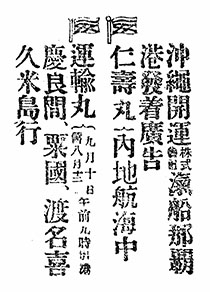 沖繩開運株式會社漁船那覇
港發着廣告
仁壽丸(内地航海中
運輸丸(九月十日午前九時出港
舊八月三
慶良間、粟國、渡名喜
久米島行